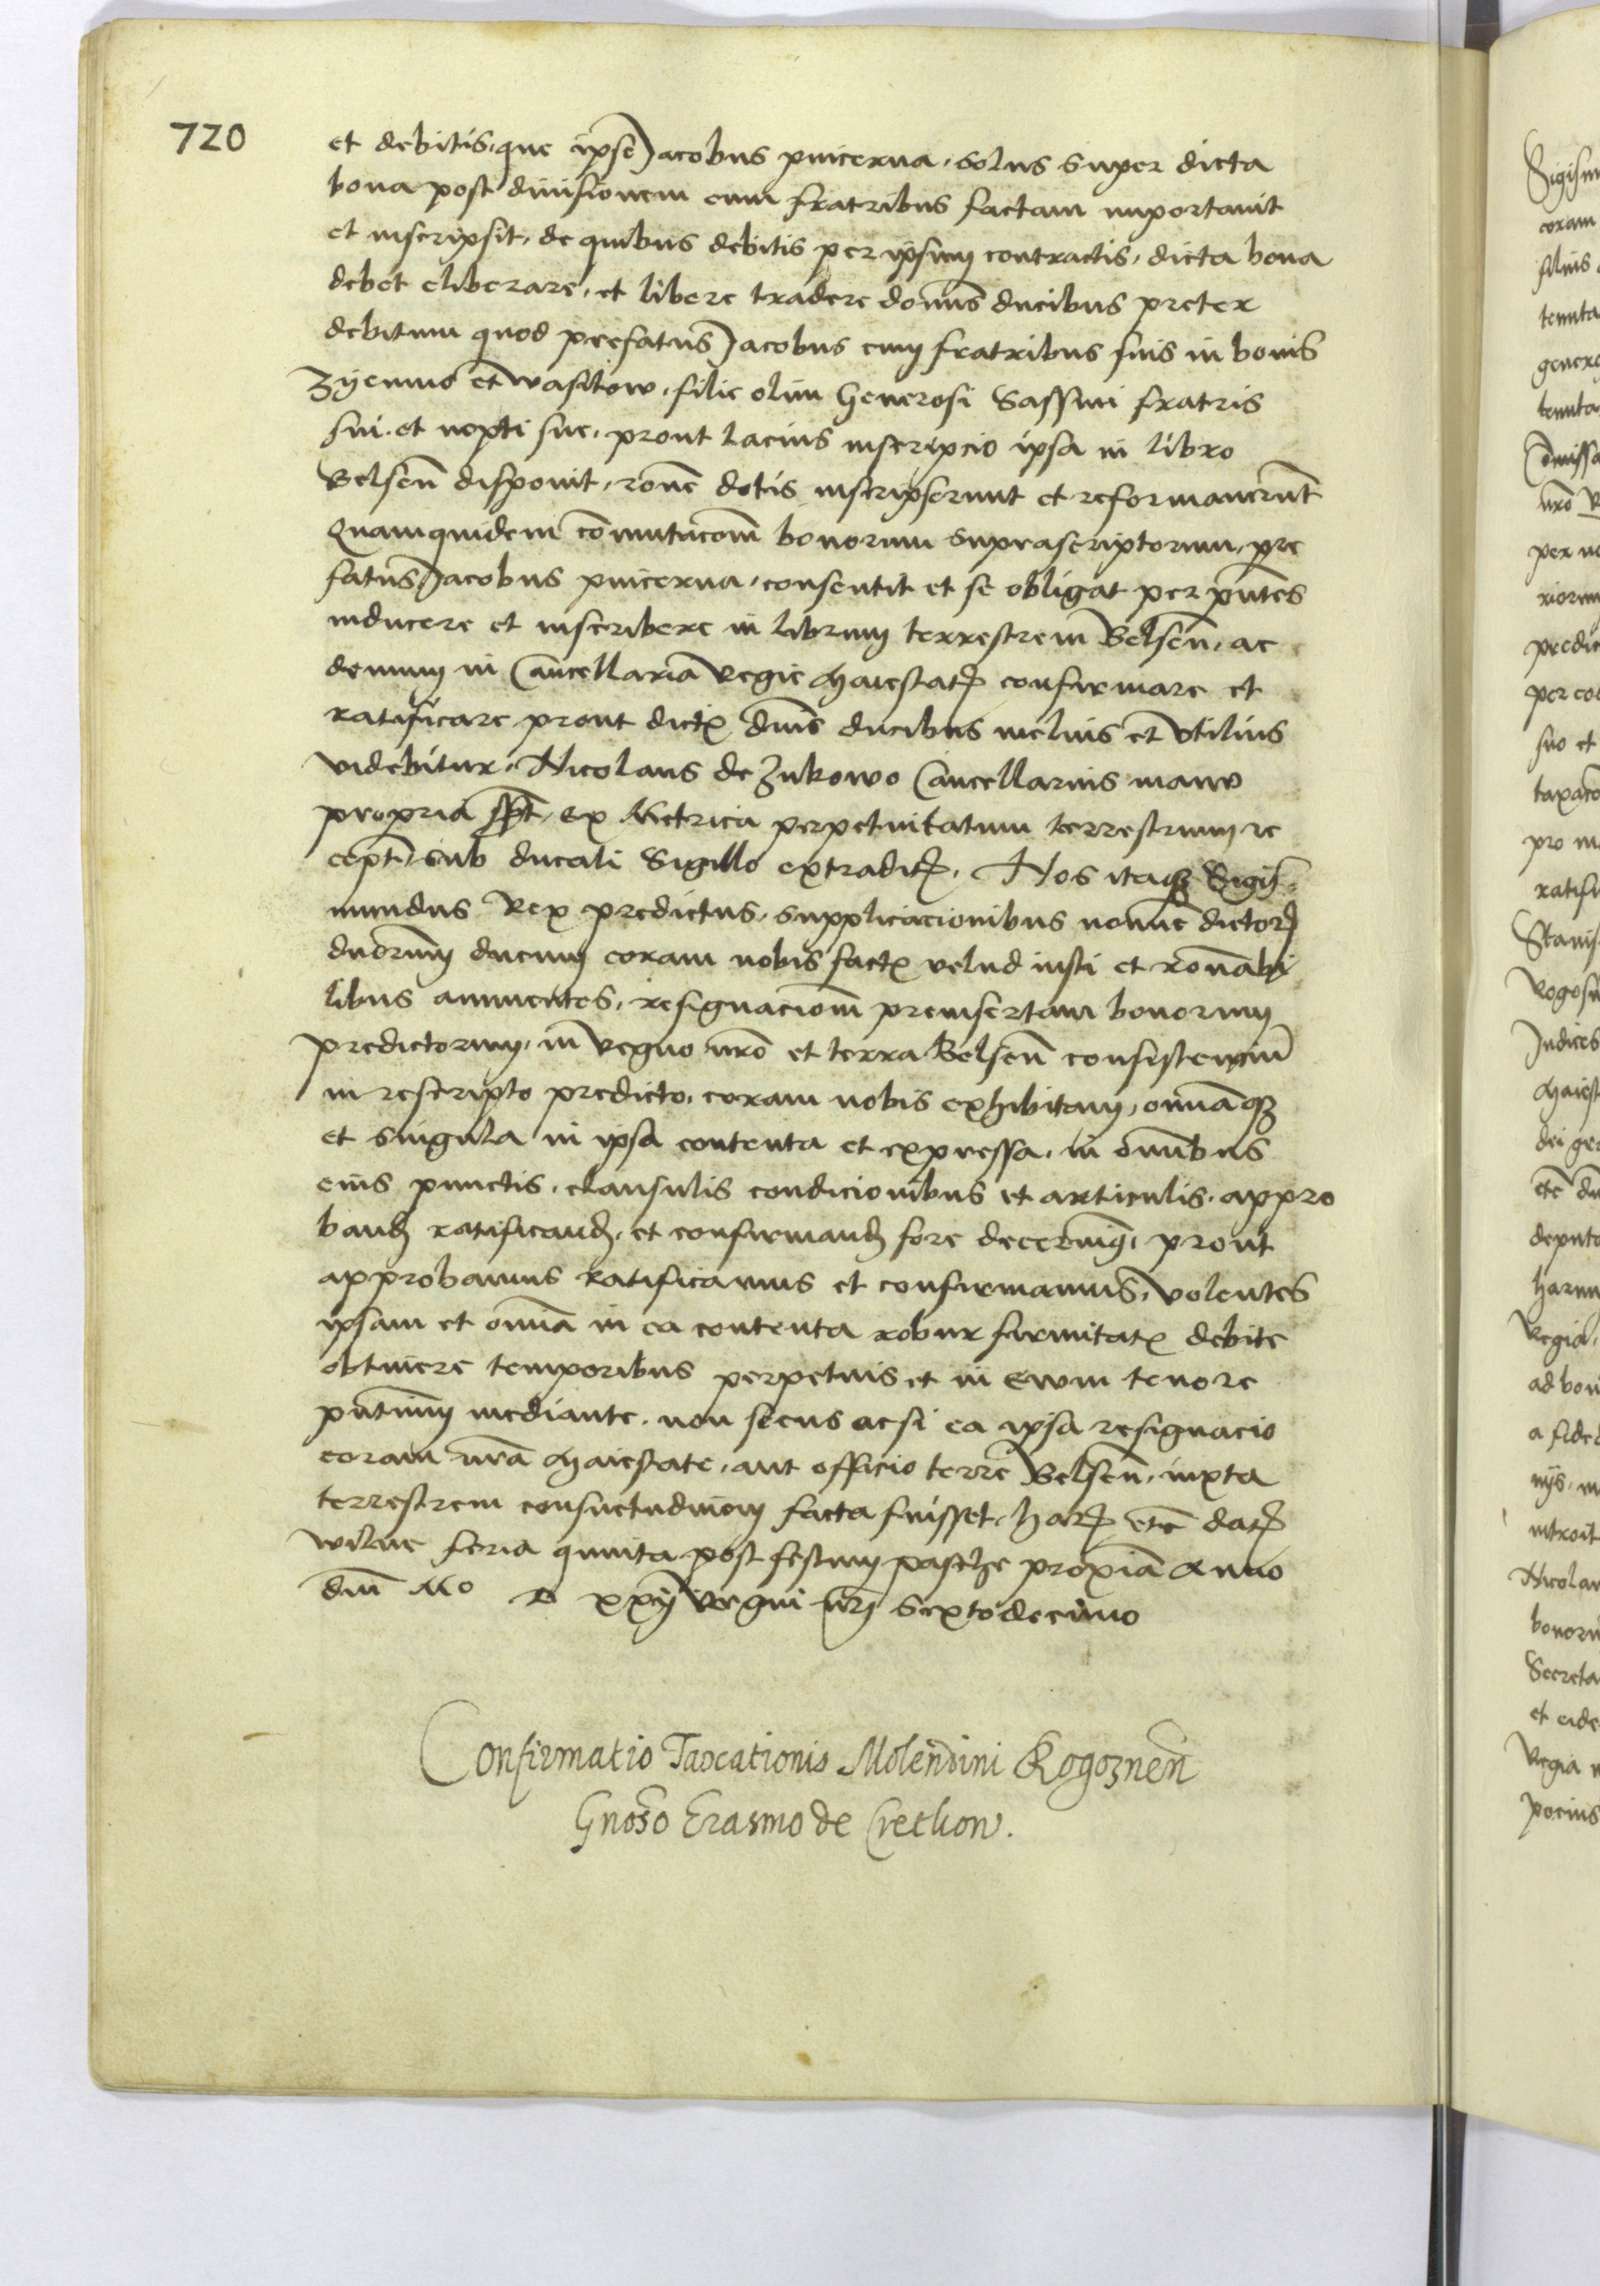 720
et debitis, que ipse Jacobus pincerna, solus super dicta
bona post divisionem cum fratribus factam importavit
et inscripsit, de quibus debitis per ipsum contractis, dicta bona
debet eliberare, et libere tradere domis ducibus preter
debitum quod prefatus Jacobus cum fratribus suis in bonis
et Wasilow, filie olim Generosi Sassini fratris
sui et nepti sue, prout lacius inscripcio ipsa in libro
Belsen disponit, rone dotis inscripserunt et reformaverunt
Quamquidem comutacom bonorum suprascriptorum, pre
fatus Jacobus pincerna, consentit et se obligat per pntes
inducere et inscribere in librum terrestrem Belsen, ac
demum in Cancellaria Regie Maiestat confirmare et
ratificare prout dict dnis ducibus melius et utilius
videbitur, Nicolaus de Zukowo Cancellarius manu
propria spt, ex Metrica perpetuitatum terrestrium re
cept, sub ducali Sigillo extradit, Nos itaq Sigis
mundus Rex predictus, supplicacionibus nomine dictor
dnorum ducum coram nobis fact velud iusti et ronabi
libus annuentes, resignaciom preinsertam bonorum
predictorum, in Regno nro et terra Belsen consistencium
in rescripto predicto, coram nobis exhibitam, omniaq
et singula in ipsa contenta et expressa, in omnibus
eius punctis, clausulis condicionibus et articulis, appro
band ratificand, et confirmand fore decrevim, prout
approbamus ratificamus et confirmamus, volentes
ipsam et omnia in ea contenta robur firmitat debite
obtinere temporibus perpetuis et in evum tenore
pntium mediante, non secus acsi ea ipsa resignacio
coram nra Maiestate, aut officio terre Belsen, iuxta
terrestrem consuetudinem facta fuisset, Har etc dat
Wilne feria quinta post festum pasche proxia Anno
dni Mo D xxij Regni nri Sextodecimo
Confirmatio Taxationis Molendini Rogoznen
Gnoso Erasmo de Cretkow.